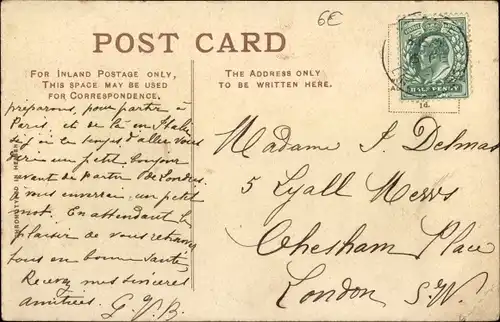 6€
POST CARD
FOR INLAND POSTAGE ONLY,
THIS SPACE MAY BE USED
FOR CORRESPONDENCE.
THE ADDRESS ONLY
TO BE WRITTEN HERE.
HALFPENNY
1d.
préparons, pour partir à
Paris et de là en Italie
j'ai le temps d'aller vous
dire un petit bonjour
avant de partir de Londres
je vous enverrai un petit
mot. En attendant le
plaisir de vous retrouver
tous en bonne santé,
Recevez mes sincères
amitiés. G.V.B.
Madame J. Delmas
5 Lyall Mews
Chesham Place
London S.W.